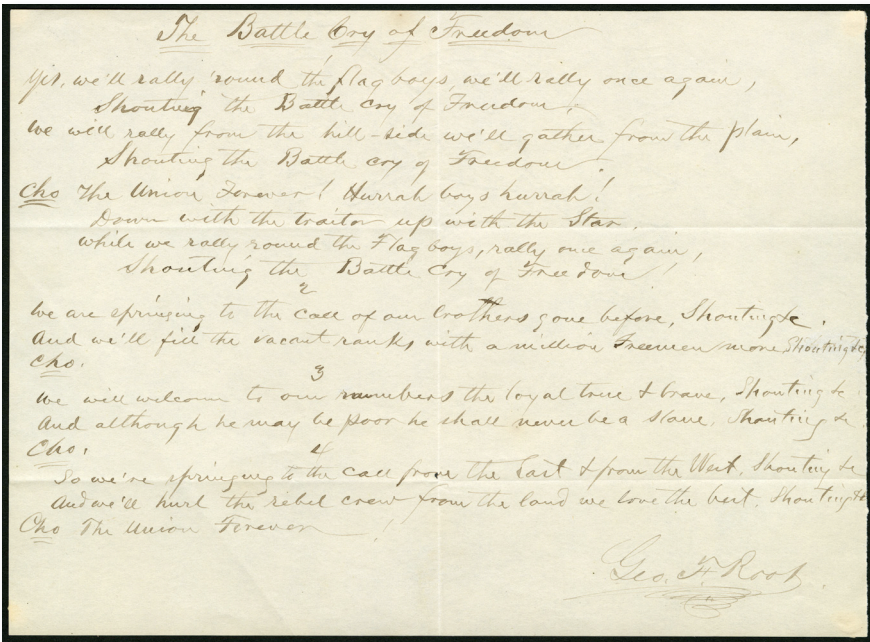 The Battle Cry of Freedom
1
Yes, we'll rally 'round the flag boys, we'll rally once again,
Shouting the Battle cry of Freedom,
We will rally from the hill-side we'll gather from the plain,
Shouting the Battle cry of Freedom.
Cho The Union Forever! Hurrah boys hurrah!
Down with the traitor up with the Star,
While we rally round the Flag boys, rally once again,
Shouting the Battle Cry of Freedom!
2
We are springing to the Call of our brothers gone before, Shouting &c.
And we'll fill the vacant ranks with a million Freemen more, Shouting &c
Cho.
3
We will welcome to our numbers the loyal true & brave, Shouting &c
And although he may be poor he shall never be a slave, Shouting &c.
Cho.
4
So we're springing to the call from the East & from the West, Shouting &c
And we'll hurl the rebel crew from the land we love the best. Shouting &c
Cho The Union Forever!
Geo. F. Root.